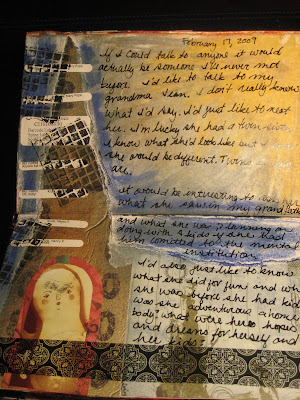 February 17, 2009
If I could talk to anyone it would
actually be someone I've never met
before. I'd like to talk to my
grandma Jean. I don't really know
what I'd say. I'd just like to meet
her. I'm lucky she had a twin
I know what she'd look like but I
she would be different. Twins
are.
It would be interesting to
what she saw in my grandfather
and what she was planning on
doing with 5 kids and a dad
with comitted to the mental
institution.
I'd also just like to know
what she did for fun and wh
she was before she had kids
was she adventurous a home
body? what were her hopes
and dreams for herself and
her kids?